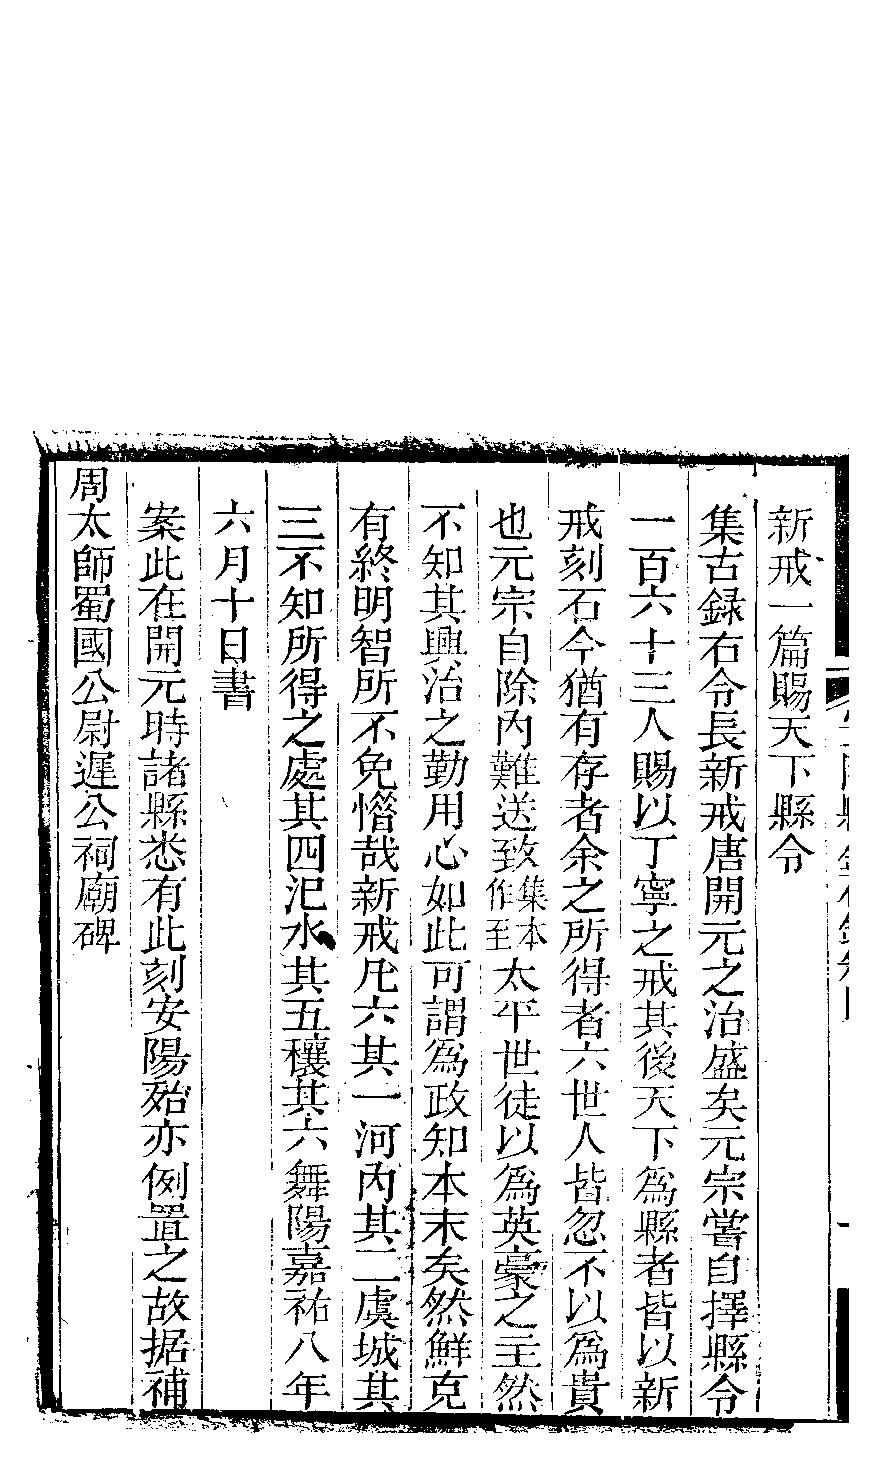 新戒一篇賜天下縣令
集古録右令長新戒唐開元之治盛矣元宗嘗自擇縣令
一百六十三人賜以丁寧之戒其後天下為縣者皆以新
戒刻石今猶有存者余之所得者六世人皆忽不以為貴
也元宗自除内難送致集本作至太平世徒以為英豪之主然
不知其興治之勤用心如此可謂為政知本末矣然鮮克
有終明智所不免惜哉新戒凡六其一河内其二虞城其
三不知所得之處其四汜水其五穰其六舞陽嘉祐八年
六月十日書
案此在開元時諸縣悉有此刻安陽殆亦例置之故据補
周太師蜀國公尉遲公祠廟碑